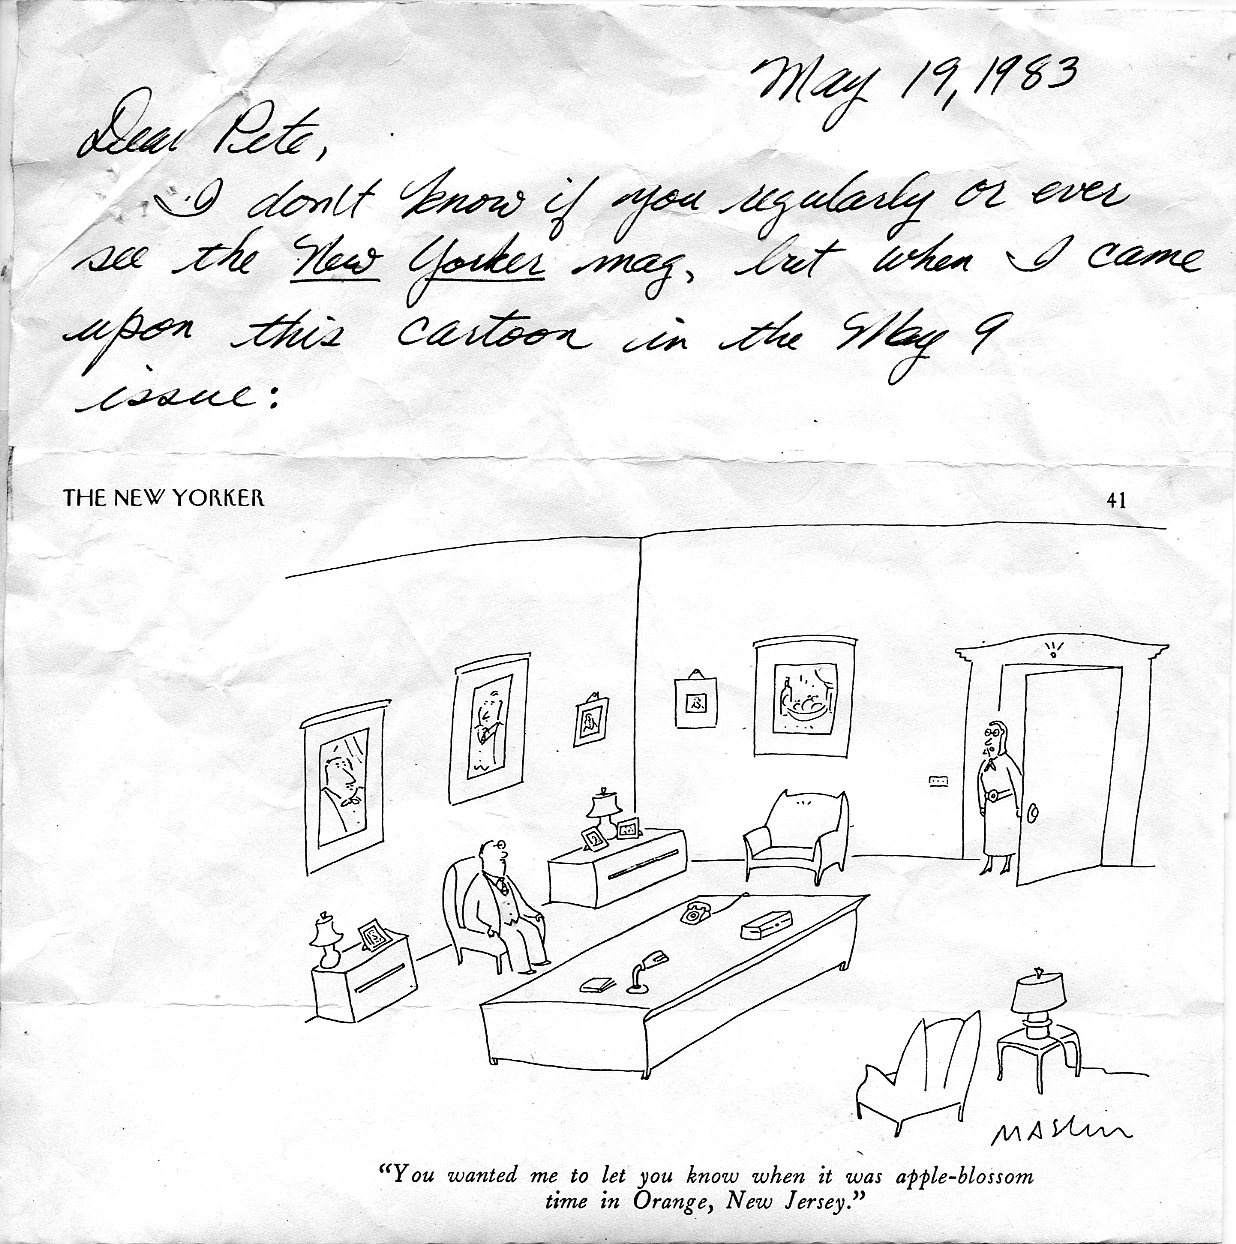 May 19, 1983
Dear Pete,
I don't know if you regularly or ever
see the New Yorker mag, but when I came
upon this cartoon in the May 9
issue:
THE NEW YORKER 41
MASLIN
"You wanted me to let you know when it was apple-blossom
time in Orange, New Jersey."